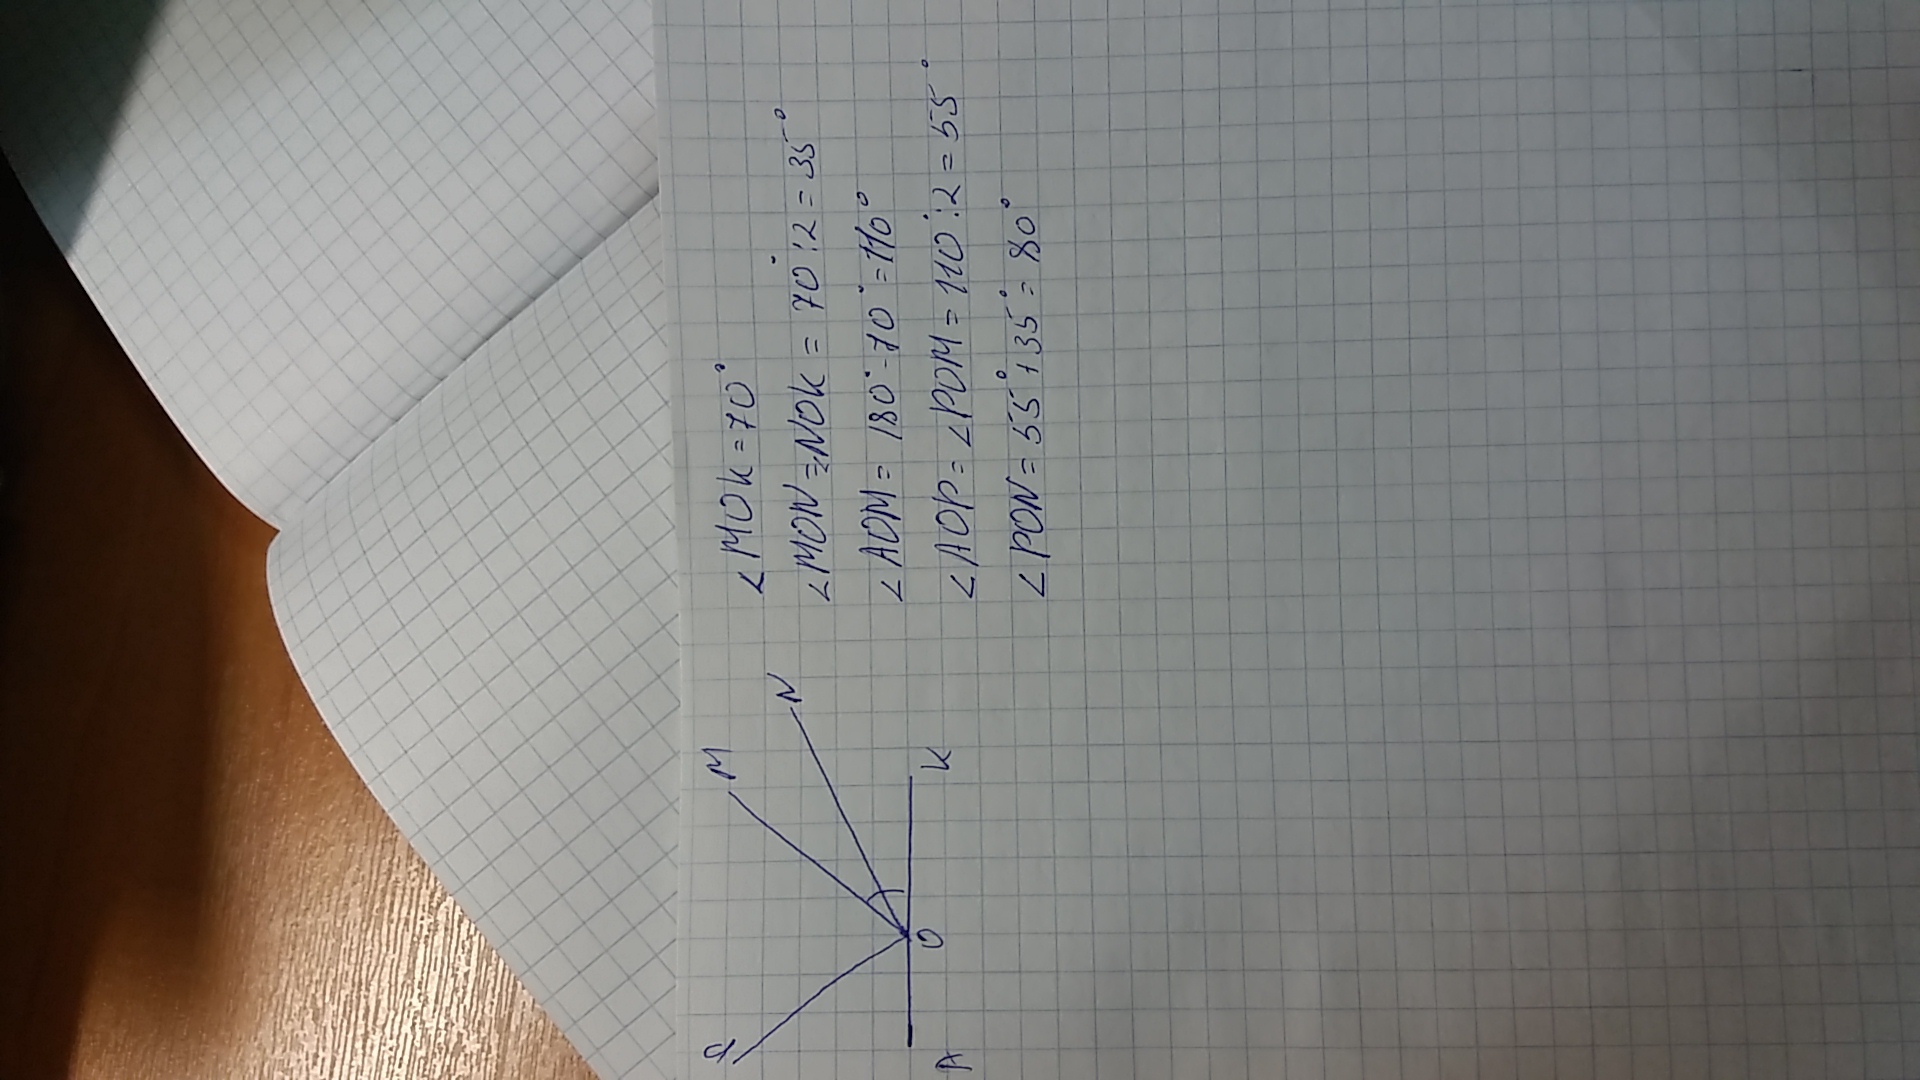 P
M
N
A
O
K
∠MOK = 70°
∠MON = ∠NOK = 70° : 2 = 35°
∠AOM = 180° - 70° = 110°
∠AOP = ∠POM = 110° : 2 = 55°
∠PON = 55° + 35° = 80°